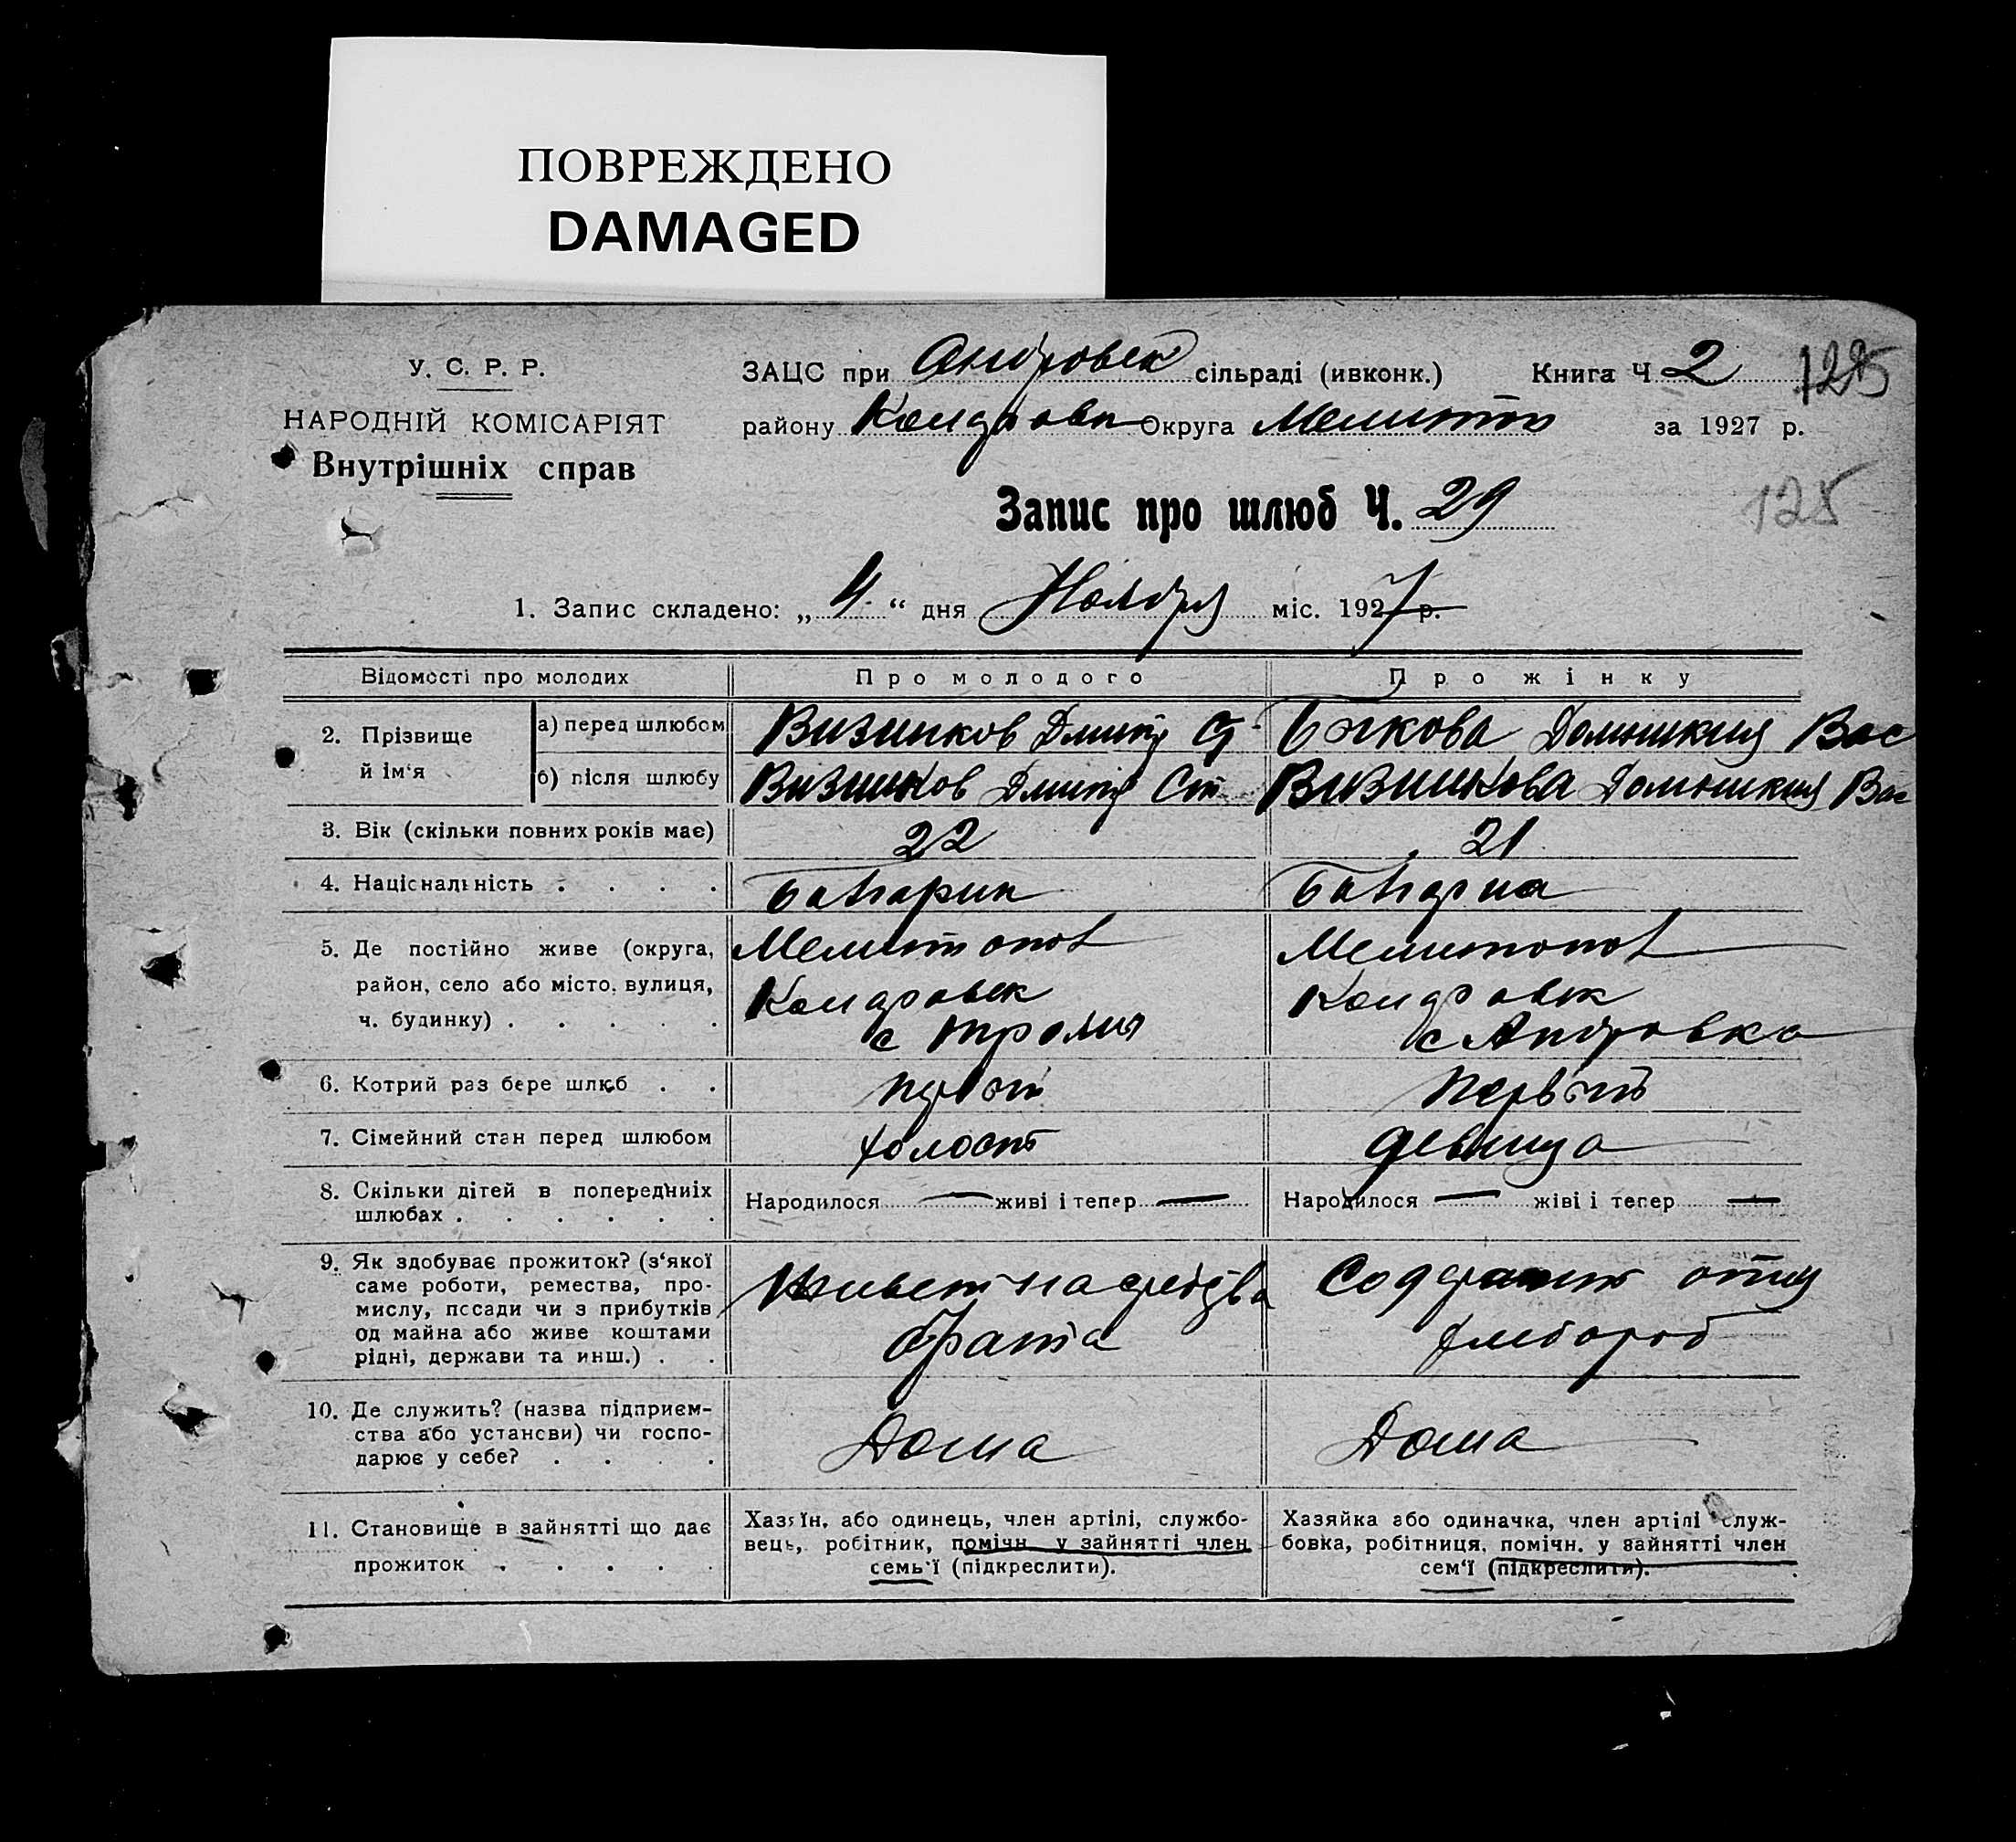 ПОВРЕЖДЕНО
DAMAGED
У. С. Р. Р.
НАРОДНІЙ КОМІСАРІЯТ
Внутрішніх справ
ЗАЦС при Андровск сільраді (ивконк.) Книга Ч 2 125
району Коларовск Округа Мелитоп за 1927 р.
125
Запис про шлюб Ч. 29
1. Запис складено: „ 4 “ дня Ноября міс. 1927 р.
Відомості про молодих Про молодого Про жінку
2. Прізвище й ім‘я
а) перед шлюбом Визинков Дмитр Ст Бчкова Домникия Вас
б) після шлюбу Визинков Дмитр Ст Визинкова Домникия Вас
3. Вік (скільки повних років має) 22 21
4. Національність . . . . Болгарин Болгарка
5. Де постійно живе (округа, Мелитопол Мелитопол
район, село або місто, вулиця, Коларовск Коларовск
ч. будинку) . . . . . с Трояны с Андровка
6. Котрий раз бере шлюб . . первый Первый
7. Сімейний стан перед шлюбом холост девица
8. Скільки дітей в попередніх Народилося — живі і тепер — Народилося — живі і тепер —
шлюбах . . . . . .
9. Як здобуває прожиток? (з‘якої
саме роботи, ремества, про-
мислу, посади чи з прибутків
од майна або живе коштами
рідні, держави та инш.) . .
Живет на средства
брата
отца
хлебороб
10. Де служить? (назва підприєм-
ства або установи) чи госпо-
дарює у себе? . . . .
Дома Дома
11. Становище в зайнятті що дає
прожиток . . . . .
Хазяїн, або одинець, член артілі, службо-
вець, робітник, помічн. у зайнятті член
семь‘ї (підкреслити).
Хазяйка або одиначка, член артілі служ-
бовка, робітниця, помічн. у зайнятті член
сем‘ї (підкреслити).